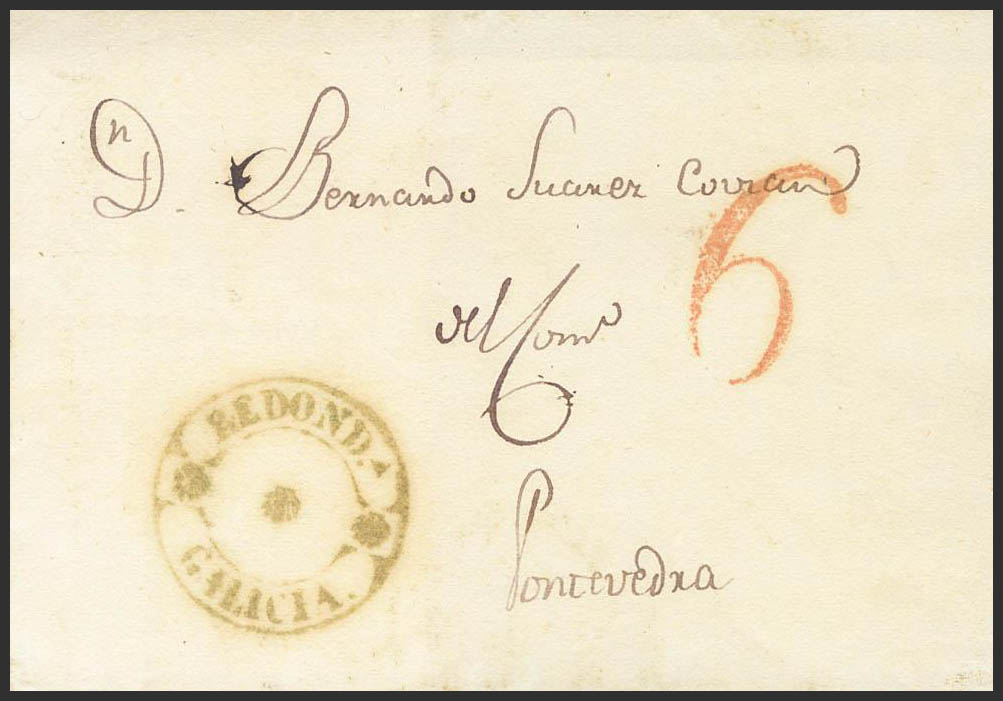 Dn. Bernardo Suarez Covian
6
del Como
Pontevedra
REDOND.A
GALICIA.